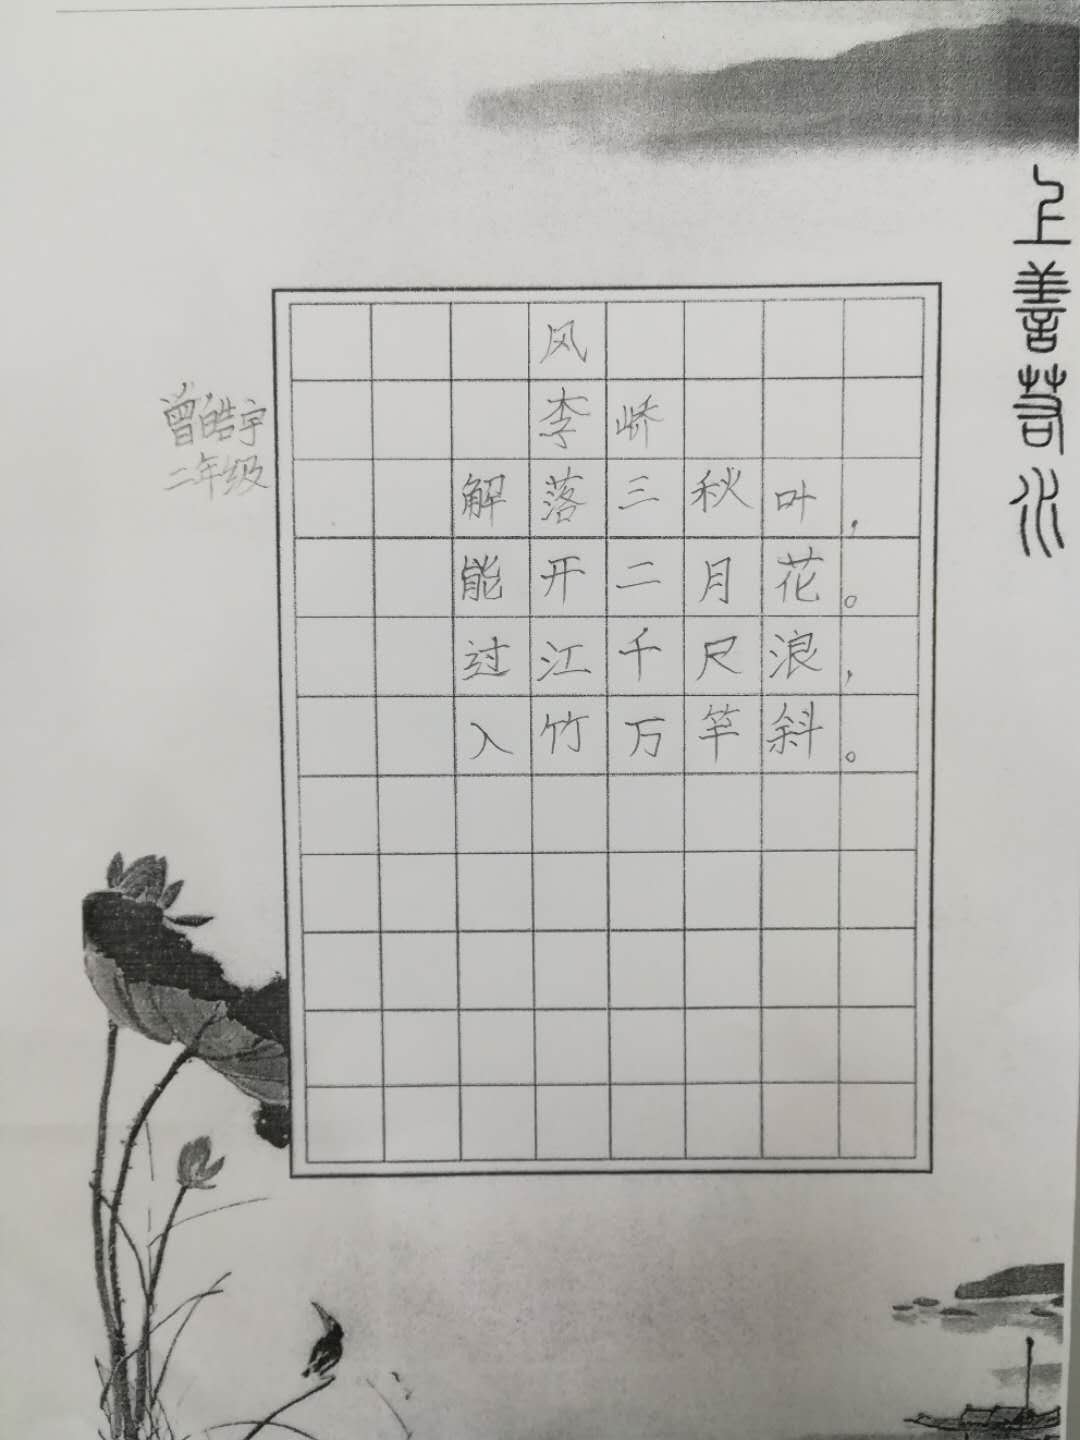 上善若水
风
李峤
曾皓宇
二年级
解落三秋叶，
能开二月花。
过江千尺浪，
入竹万竿斜。